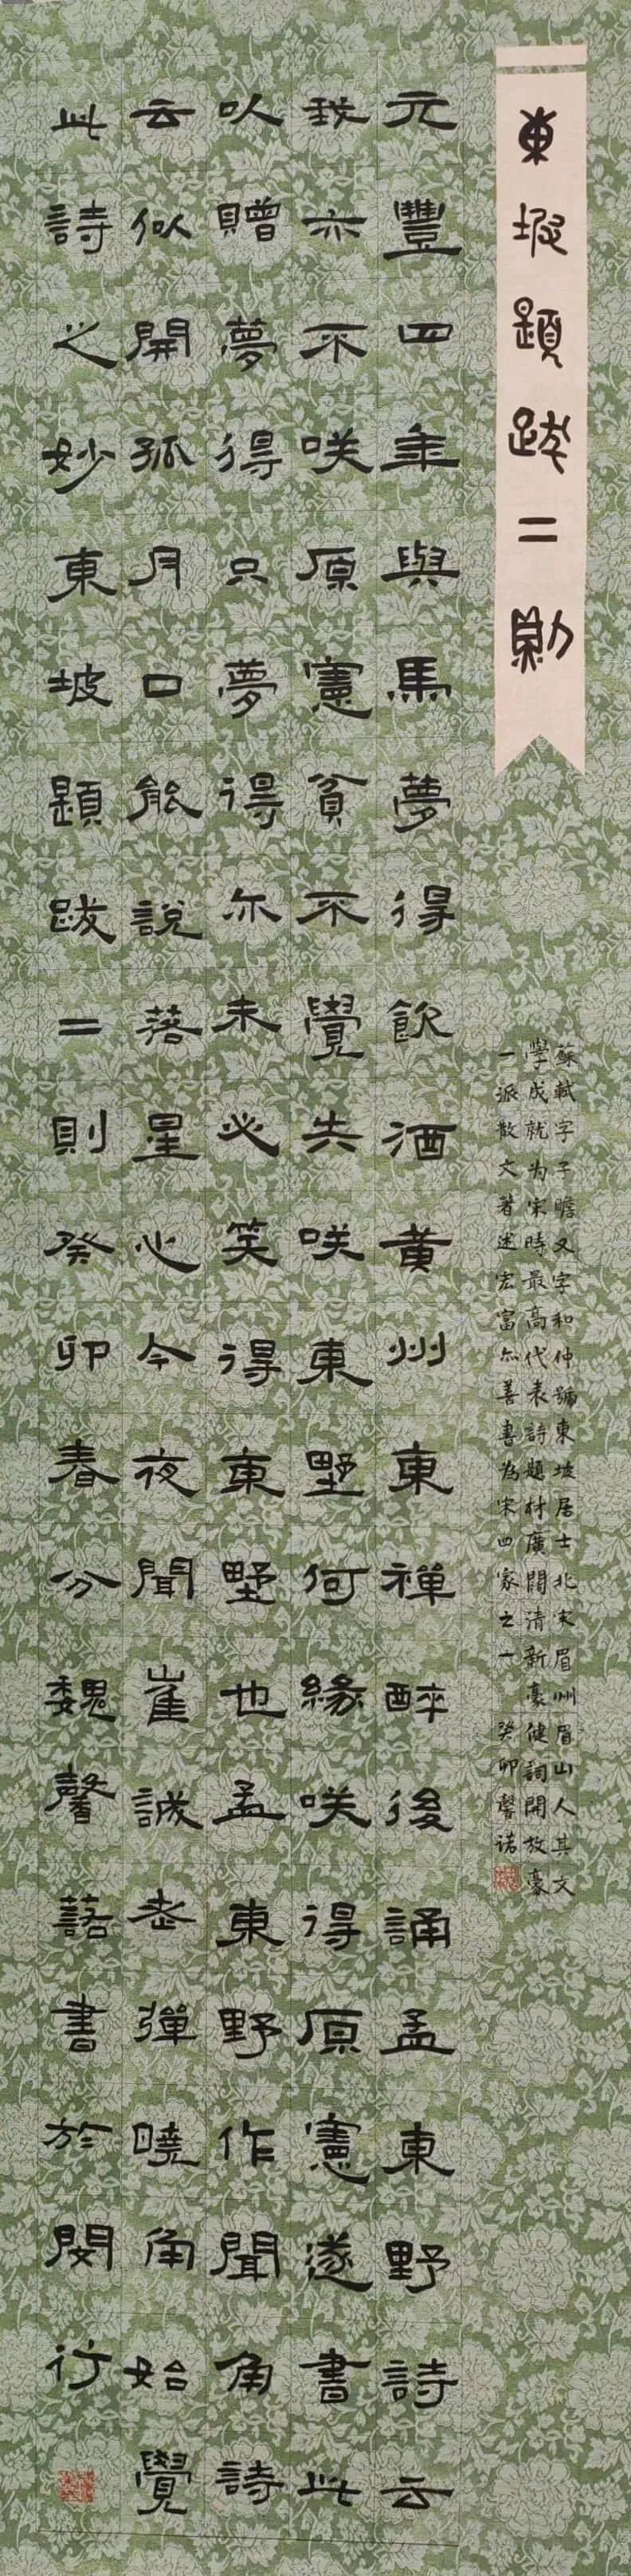 東坡題跋二則
蘇軾字子瞻又字和仲號東坡居士北宋眉州眉山人其文
學成就为宋時最高代表詩題材廣闊清新豪健詞開放豪
一派散文著述宏富亦善書為宋四家之一 癸卯馨諾
元豐四年與馬夢得飲酒黃州東禪醉後誦孟東野詩云
我亦不咲原憲貧不覺失咲東墅何緣咲得原憲遂書此
以贈夢得只夢得亦未必笑得東墅也孟東野作聞角詩
云似開孤月口能說落星心今夜聞崔誠老彈曉角始覺
此詩之妙東坡題跋二則癸卯春分魏馨諾書於閔行